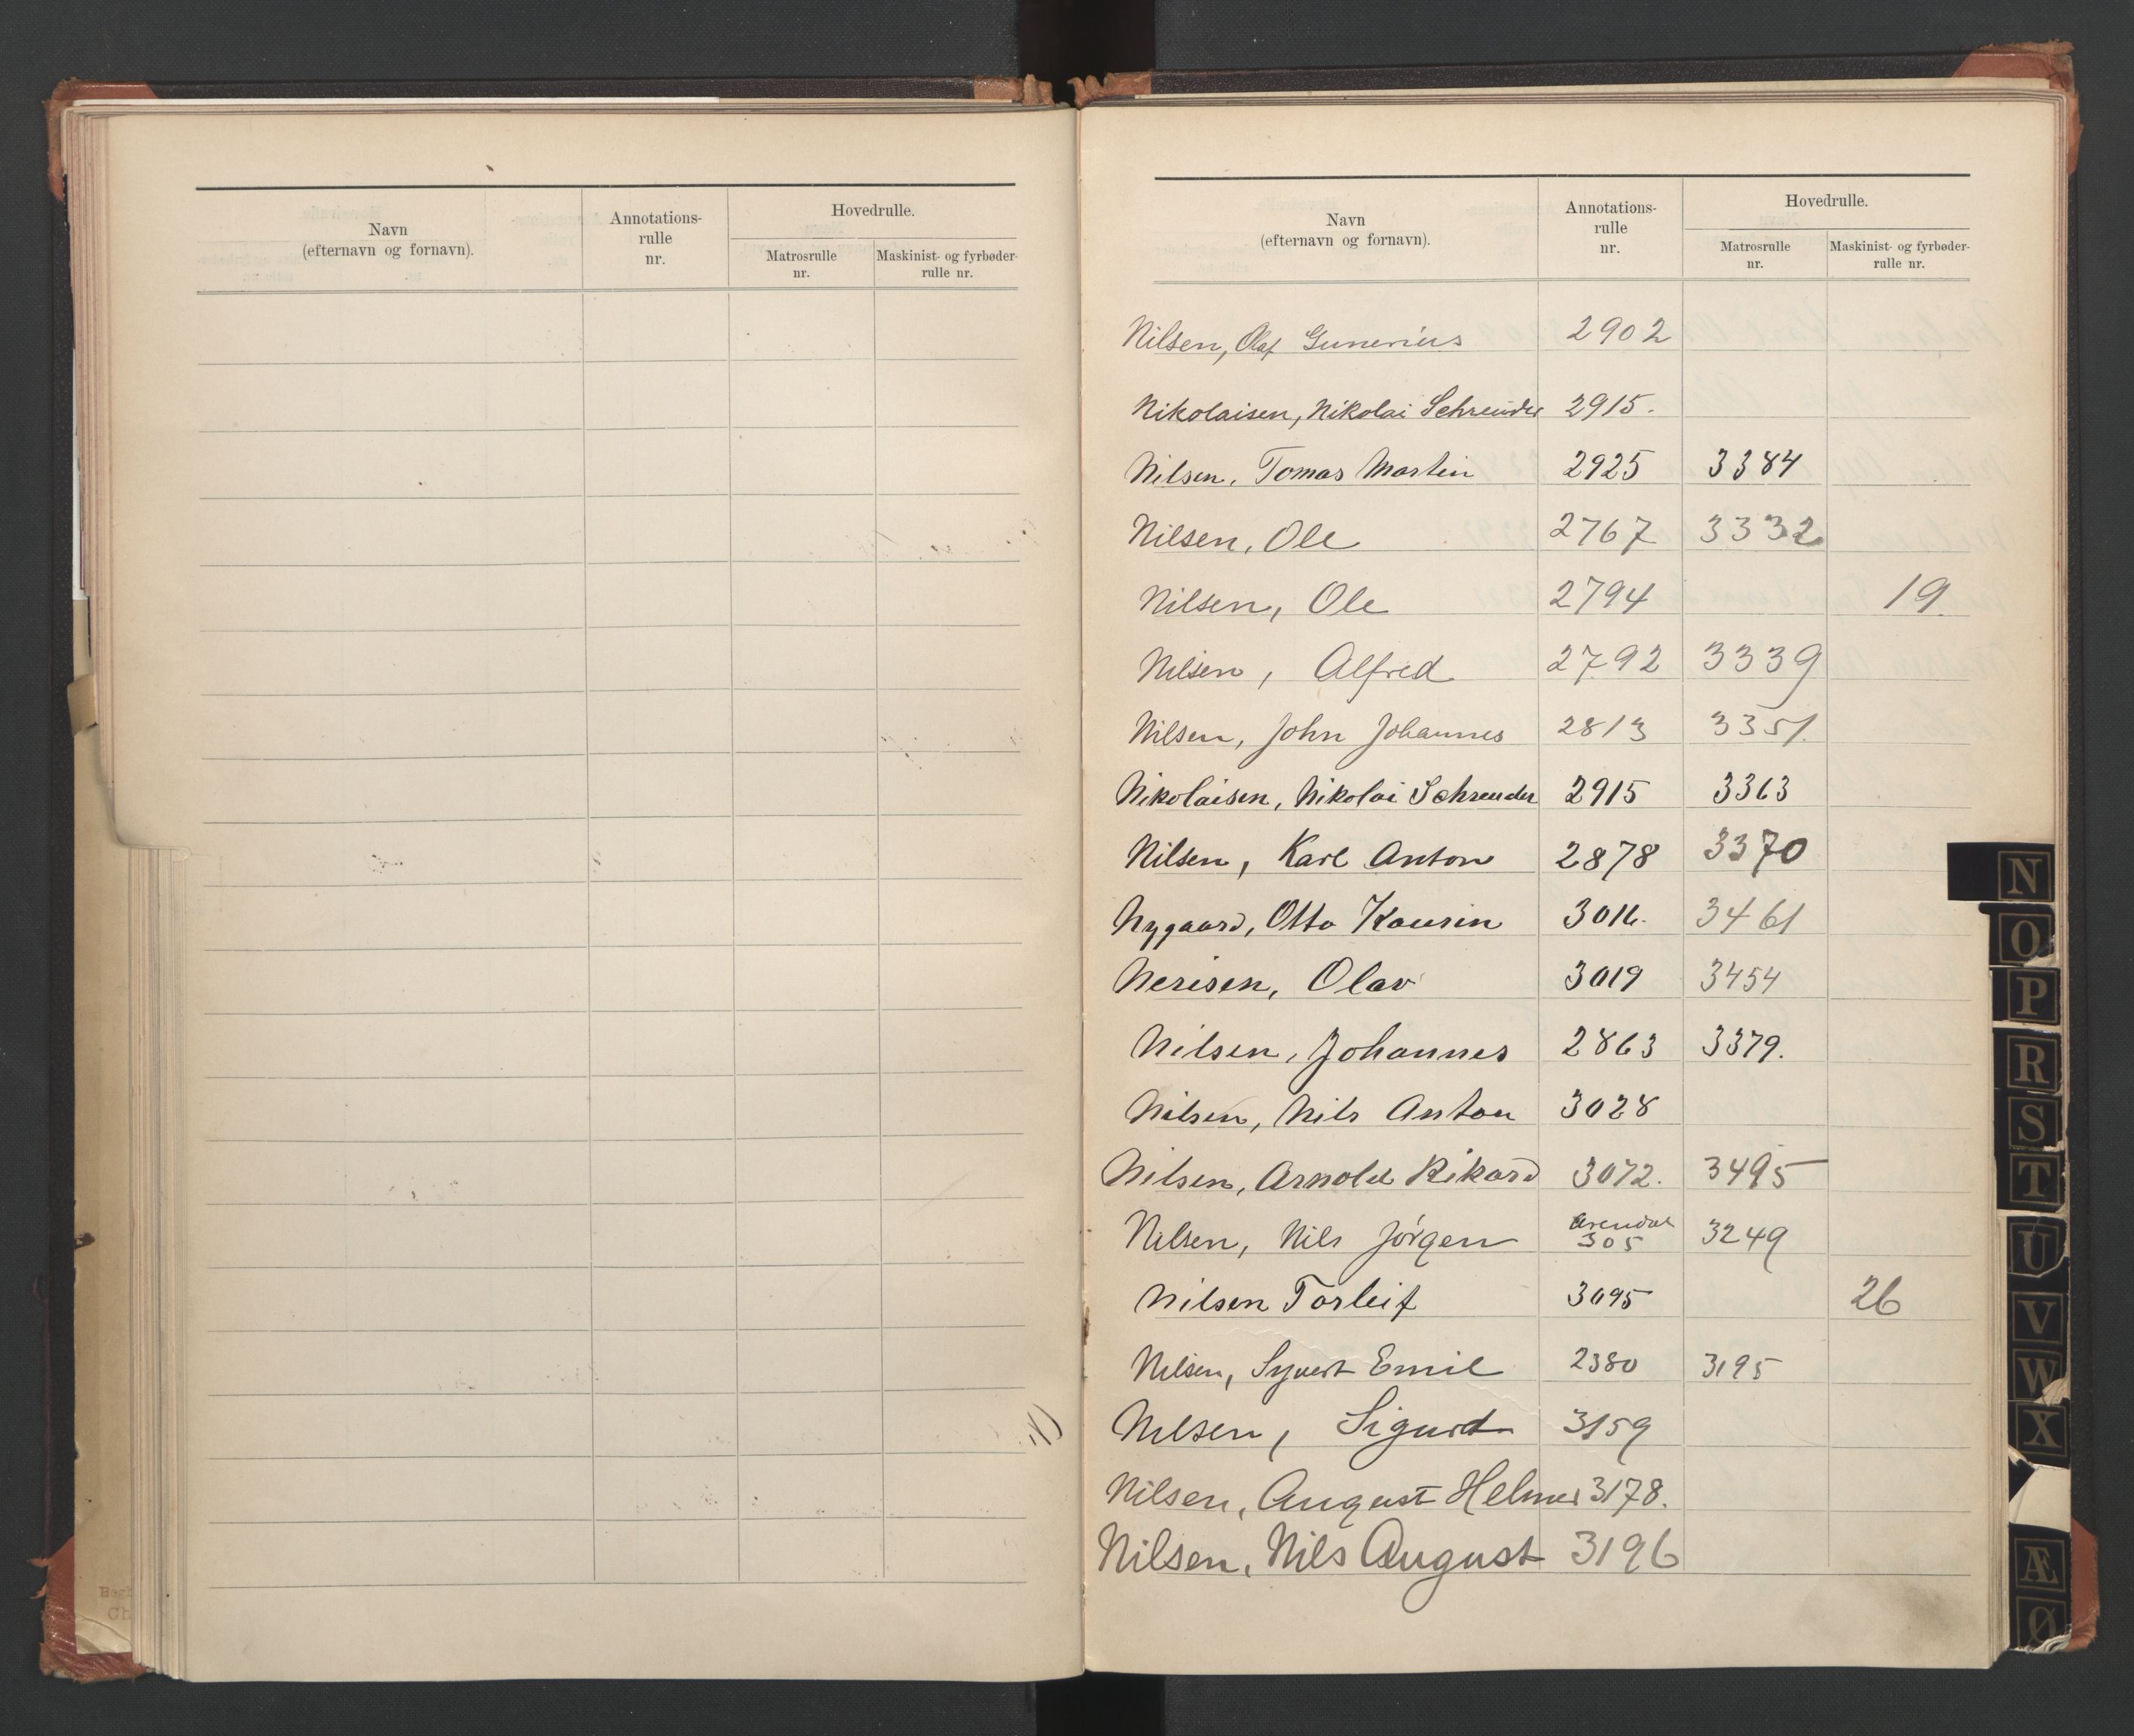 Navn
(efternavn og fornavn).
Annotations-
rulle
nr.
Hovedrulle.
Matrosrulle
nr.
Maskinist- og fyrbøder-
rulle nr.
Navn
(efternavn og fornavn).
Annotations-
rulle
nr.
Hovedrulle.
Matrosrulle
nr.
Maskinist- og fyrbøder-
rulle nr.
Nilsen, Olaf Gunerius 2902
Nikolaisen, Nikolai Schreuder 2915.
Nilsen, Tomas Martin 2925 3384
Nilsen, Ole 2767 3332
Nilsen, Ole 2794 19
Nilsen, Alfred 2792 3339
Nilsen, John Johannes 2813 3351.
Nikolaisen, Nikolai Schreuder 2915 3363
Nilsen, Karl Anton 2878 3370
Nygaard, Otto Kaurin 3461
Nerisen, Olav 3019 3454
Nilsen, Johannes 2863 3379.
Nilsen, Nils Anton 3028
Nilsen, Arnold Rikard 3072. 3495
Nilsen, Nils Jörgen Arendal 305 3249
Nilsen Torleif 3095 26
Nilsen, Syvert Emil 2380 3195
Nilsen, Sigurd 3159
Nilsen, August Helmer 3178.
Nilsen, Nils August 3196
N
O
P
R
S
T
U
V
W
X
Æ
Ø